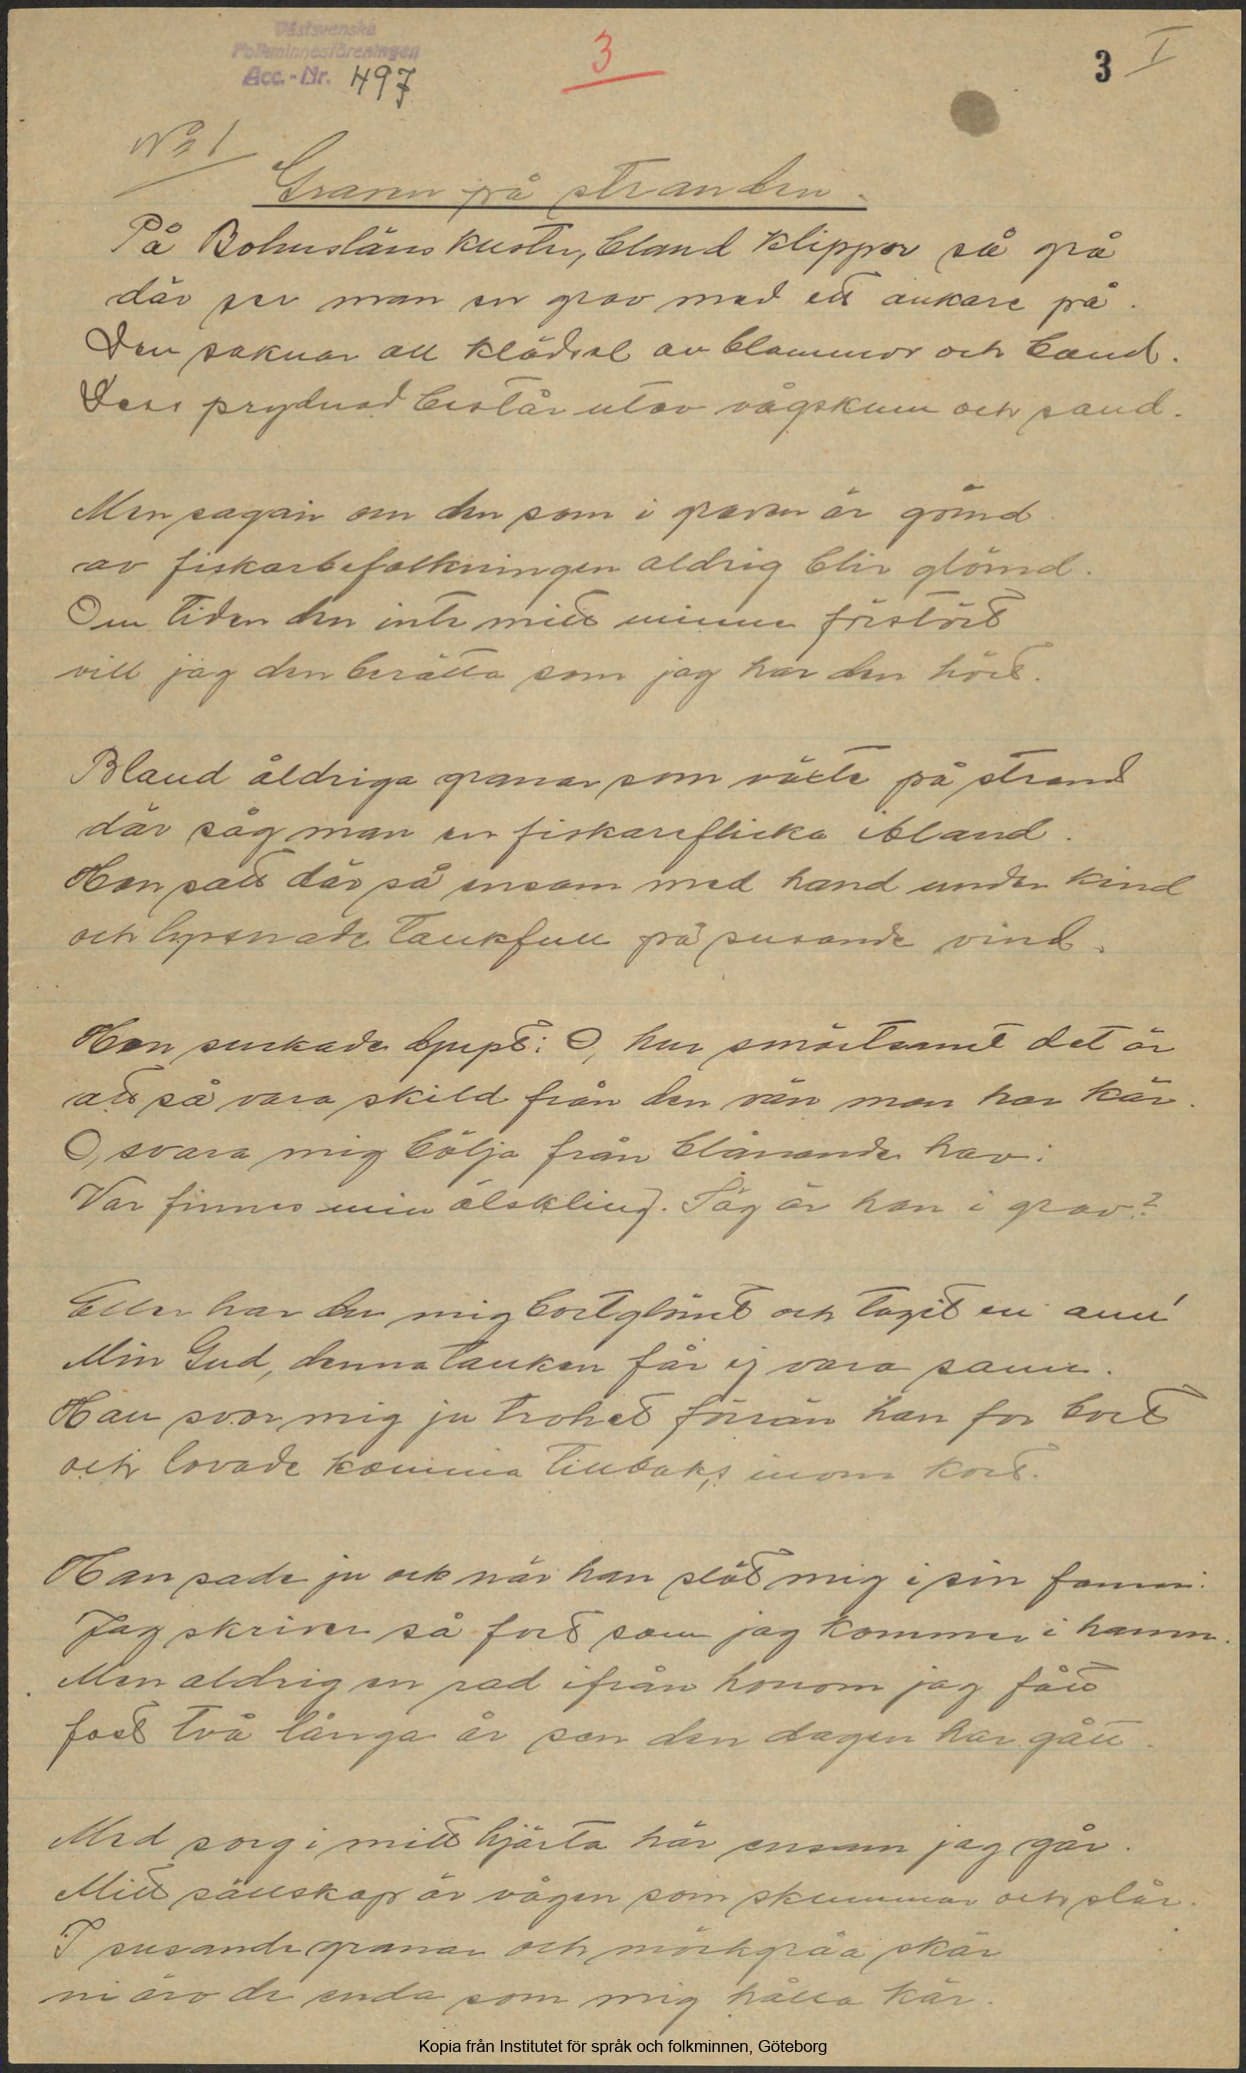 Västsvenska
Folkminnesföreningen
Acc.-Nr. 497
3
3 I
No 1
Graven på stranden.
På Bohusläns kuster, bland klippor så grå
där ser man en grav med ett ankare på.
Den saknar all klädsel av blommor och band.
Dess prydnad består utav vågskum och sand.
Men sagan om den som i graven är gömd
av fiskarbefolkningen aldrig blir glömd.
Om tiden den inte mitt minne förstört
vill jag den berätta som jag har den hört.
Bland åldriga granar som växte på strand
där såg man en fiskareflicka ibland.
Hon satt där så ensam med hand under kind
och lyssnade tankfull på susande vind.
Hon suckade djupt: O, hur smärtsamt det är
att så vara skild från den vän man har kär.
O, svara mig bölja från blånande hav:
Var finnes min älskling. Säg är han i grav?
Eller har den mig bortglömt och tagit en ann'
Min Gud, denna tanken får ej vara sann.
Han svor mig ju trohet förrän han for bort
och lovade komma tillbaks inom kort.
Han sade ju ock när han slöt mig i sin famn:
Jag skriver så fort som jag kommer i hamn.
Men aldrig en rad ifrån honom jag fått
fast två långa år sen den dagen har gått.
Med sorg i mitt hjärta här ensam jag går.
Mitt sällskap är vågen som skummar och slår.
I susande granar och mörkgråa skär
ni äro de enda som mig hålla kär.
Kopia från Institutet för språk och folkminnen, Göteborg